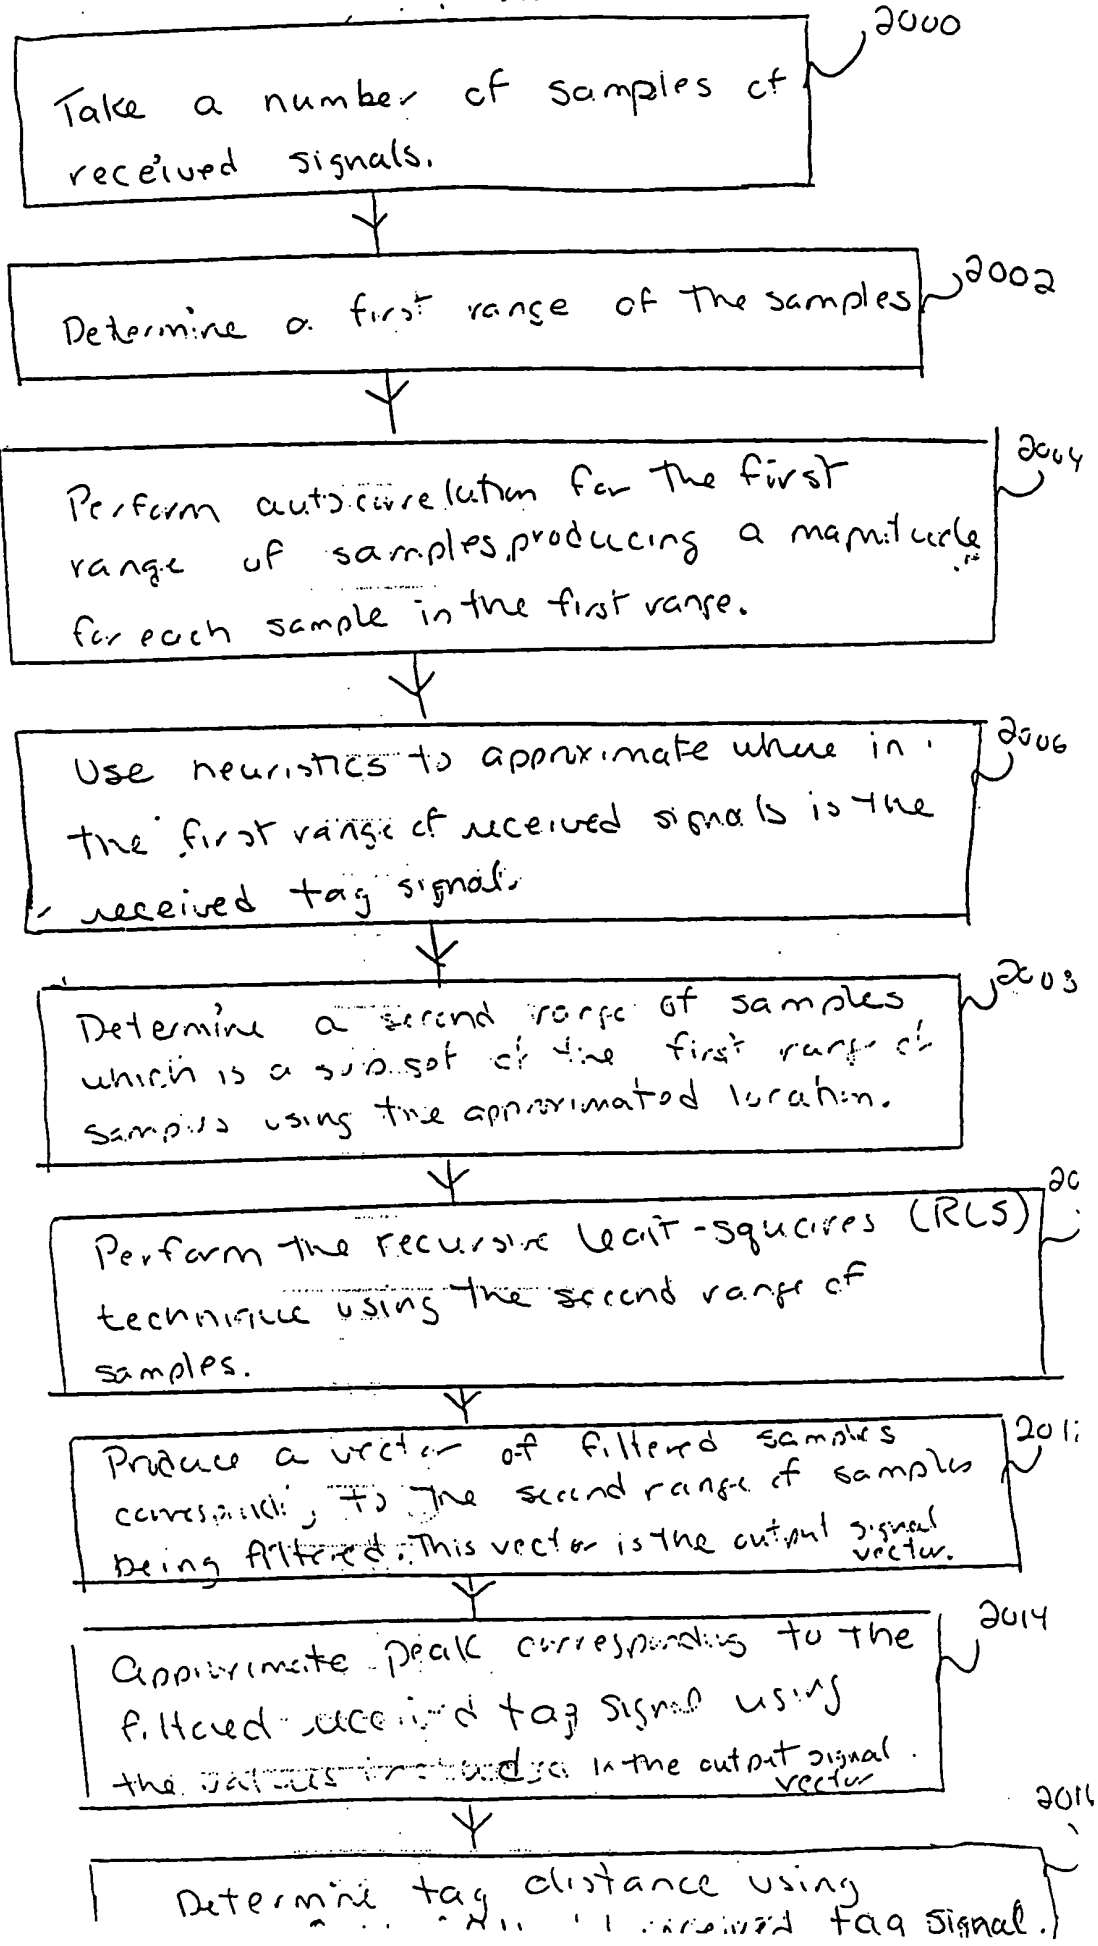 2000
Take a number of samples of
received signals.
2002
Determine a first range of the samples
2004
Perform autocorrelation for the first
range of samples, producing a magnitude
for each sample in the first range.
2006
Use heuristics to approximate where in
the first range of received signals is the
received tag signal.
2008
Determine a second range of samples
which is a subset of the first range of
samples using the approximated location.
20
Perform the recursive least-squares (RLS)
technique using the second range of
samples.
201
Produce a vector of filtered samples
to the second range of samples
being filtered. This vector is the output signal
vector.
2014
Approximate peak corresponding to the
filtered received tag signal using
the values in the output signal
vector
2016
Determine tag distance using
received tag signal.